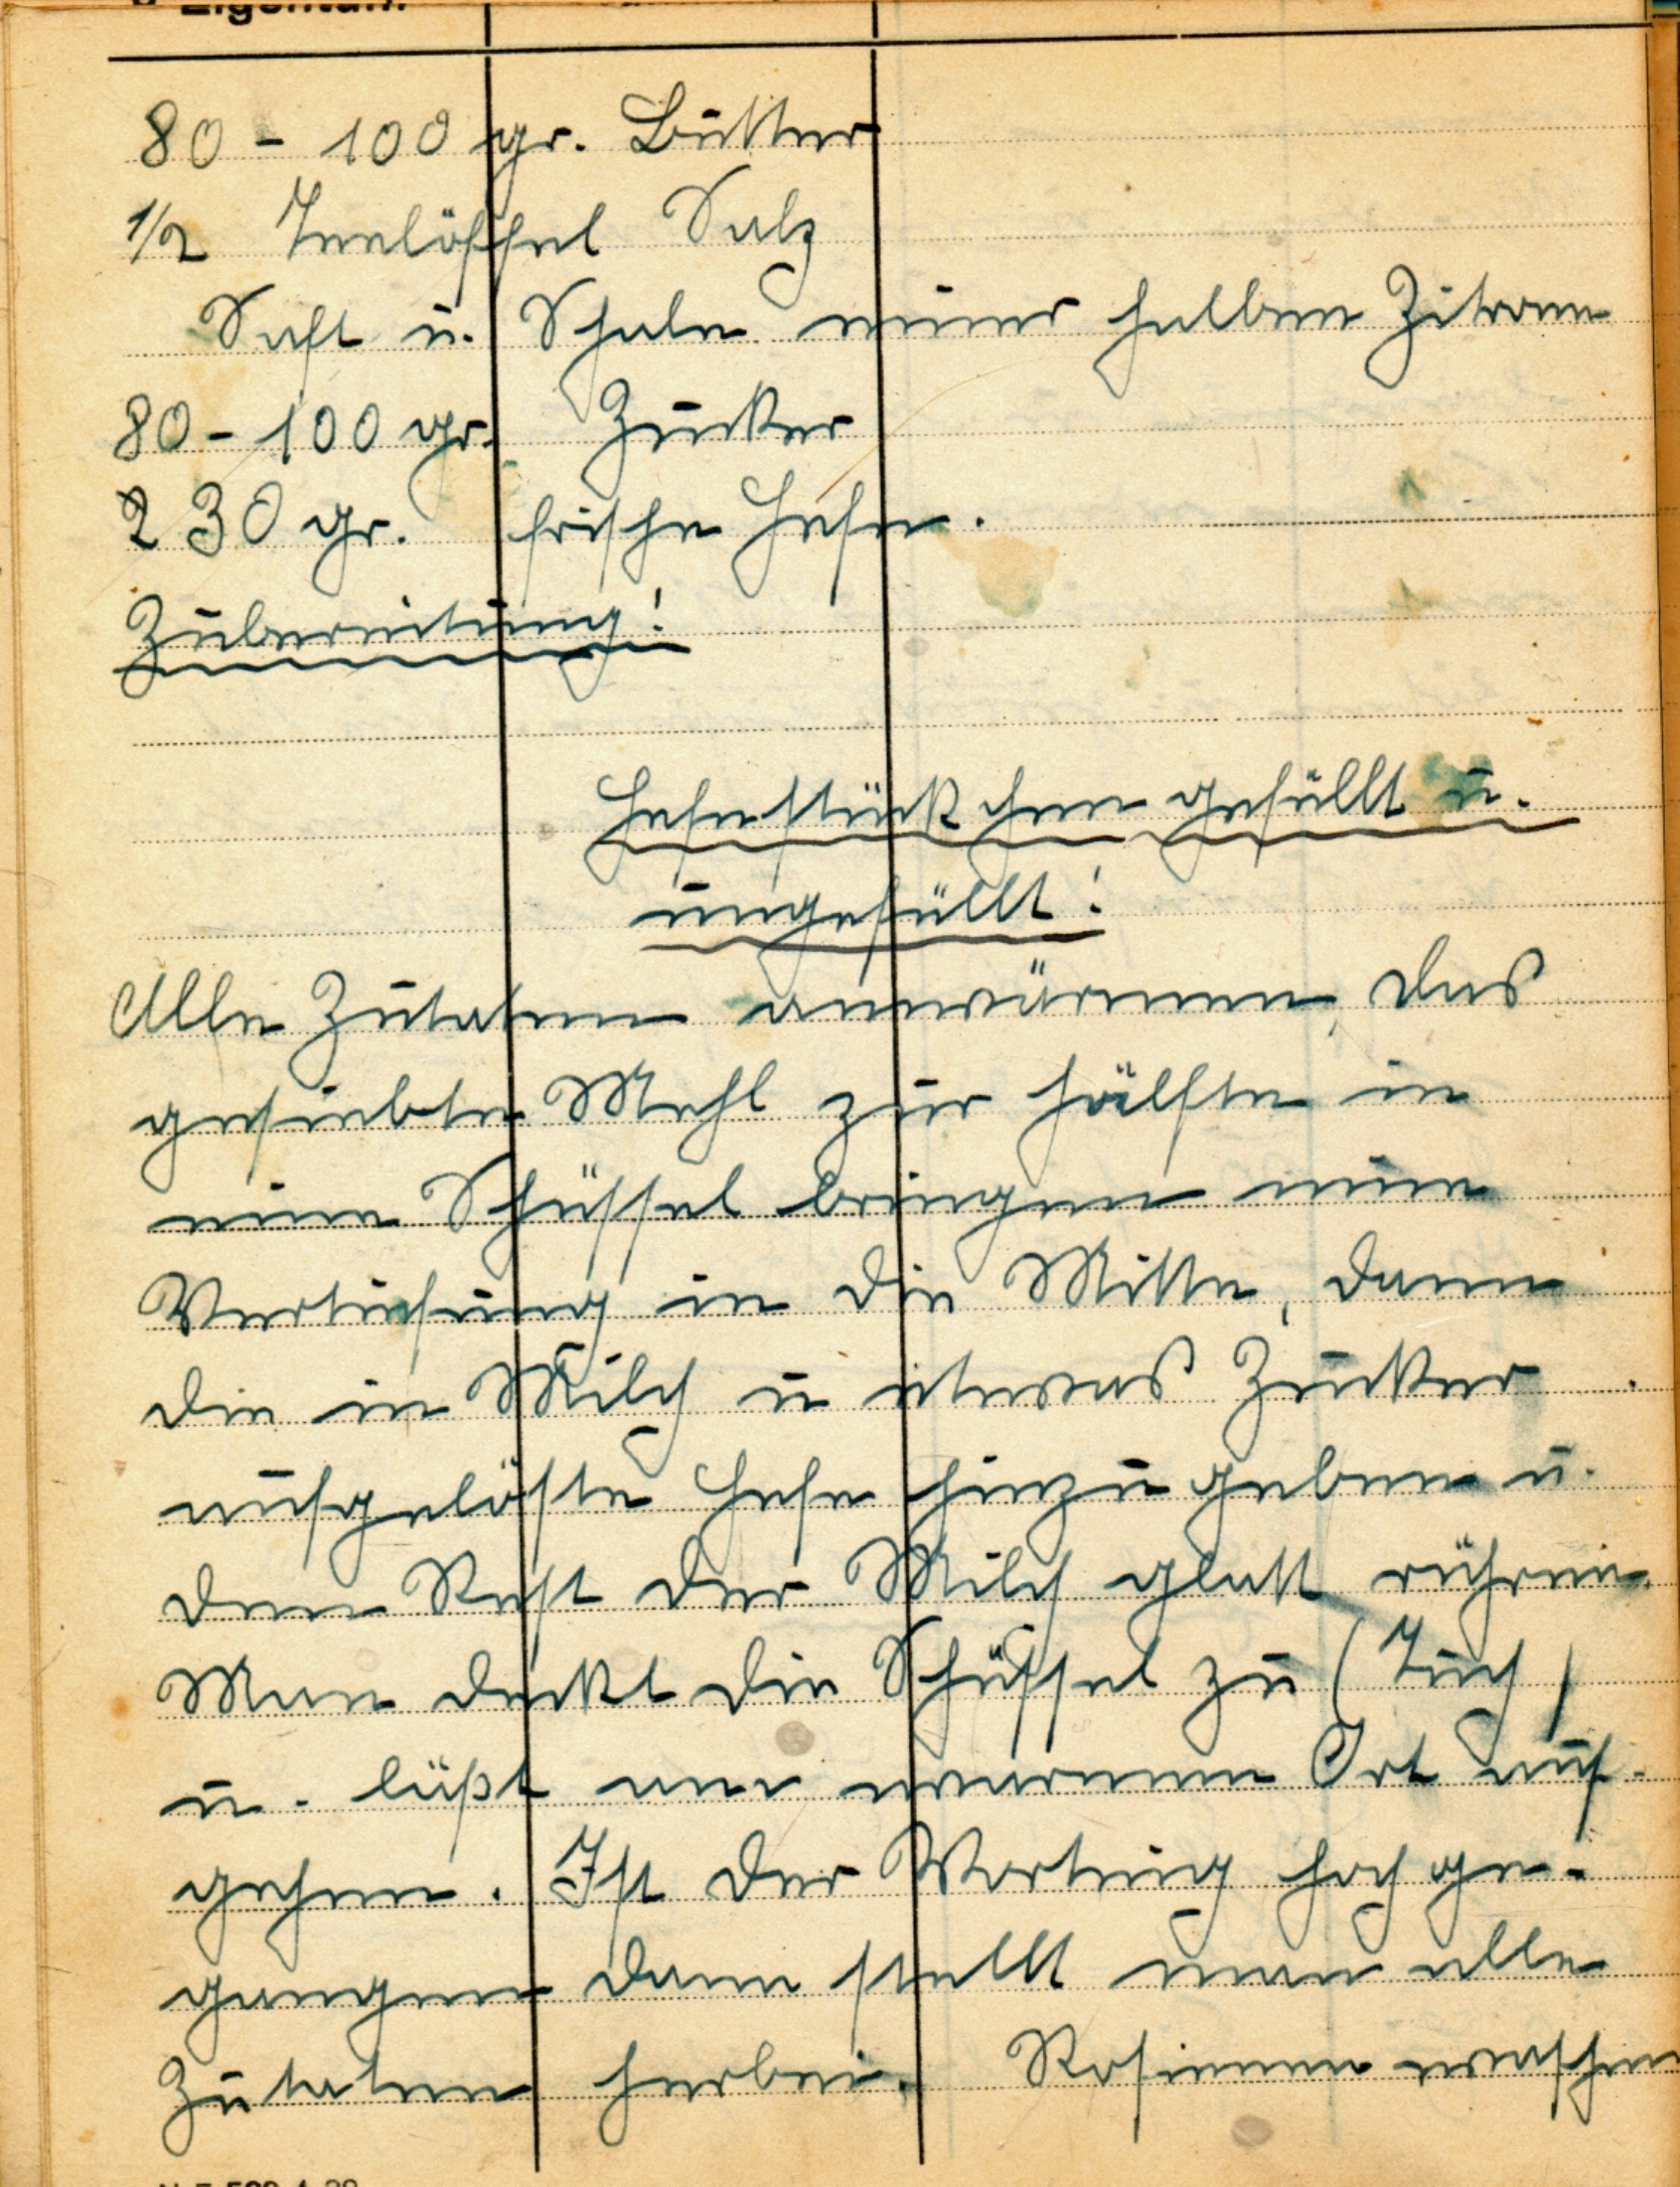 Eigentum
80 - 100 gr. Butter
1/2 Teelöffel Salz
Saft u. Schale einer halben Zitrone
80 - 100 gr. Zucker
230 gr. frische Hefe.
Zubereitung:
Hefestückchen gefüllt u.
ungefüllt:
Alle Zutaten anwärmen, das
gesiebte Mehl zur hälfte in
eine Schüssel bringen eine
Vertiefung in die Mitte, dann
die in Milch u etwas Zucker
aufgelöste Hefe hinzu geben u.
den Rest der Milch glatt rühren.
Man deckt die Schüssel zu (Tuch)
u. läßt am warmen Ort auf-
gehen. Ist der Vorteig hoch ge-
gangen dann stellt man alle
Zutaten herbei. Rosinen waschen